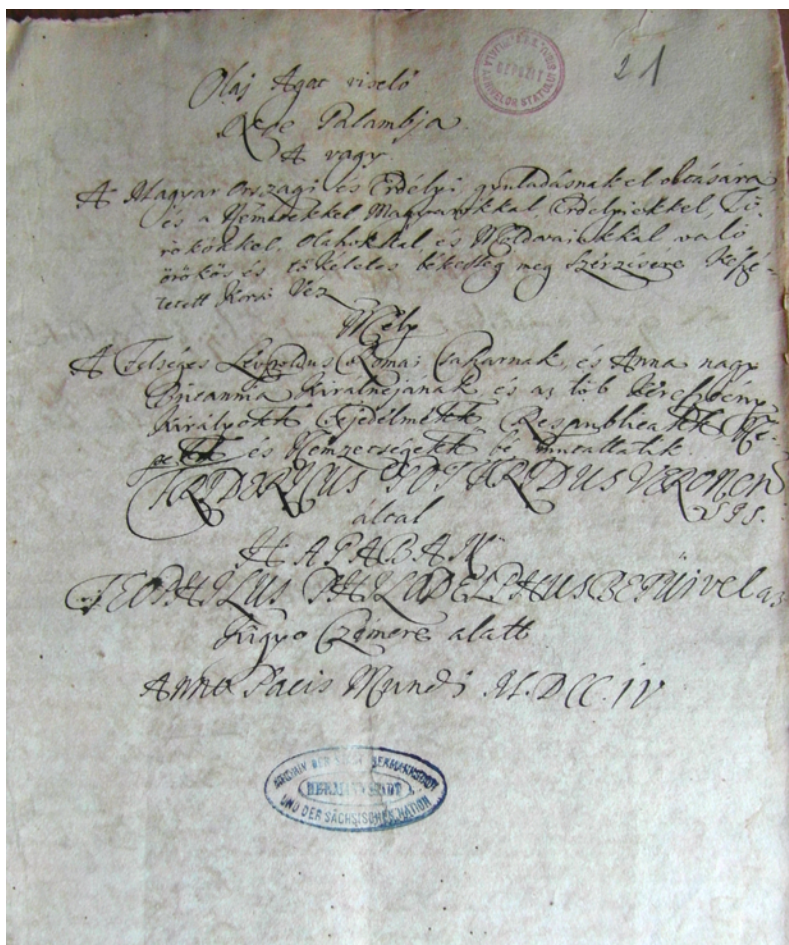 21
Olaj Agat viselő
Noe Galambja
A vagy
A Magyar Országi és Erdélyi gyuladásnak el oltására
és a Németekkel Magyarokkal, Erdélyiekkel, Tö-
rökökkel, Olahokkal, és Moldvaiakkal való
örökös és tökéletes békesség meg szérzésére
tetett
Mely
A Felséges Leopoldus Romai Csakarnak, és Anna nagy
Királnéjanak és az töb
Királyokk Fejedelmekk Respublicakk Me-
és Nemzetségekk bé mutattatik.
FRIDERICUS GOTEFRIDUS VERONEN
SIS.
által
HAGABAN
TEOPHILUS PHILADELPHUS BETŰivel az
Kigyo Czimere alatt
Anno Pacis Mundi M.DCC.IV
ARCHIV DER STADT HERMANNSTADT
HERMANNSTADT
UND DER SÄCHSISCHEN NATION